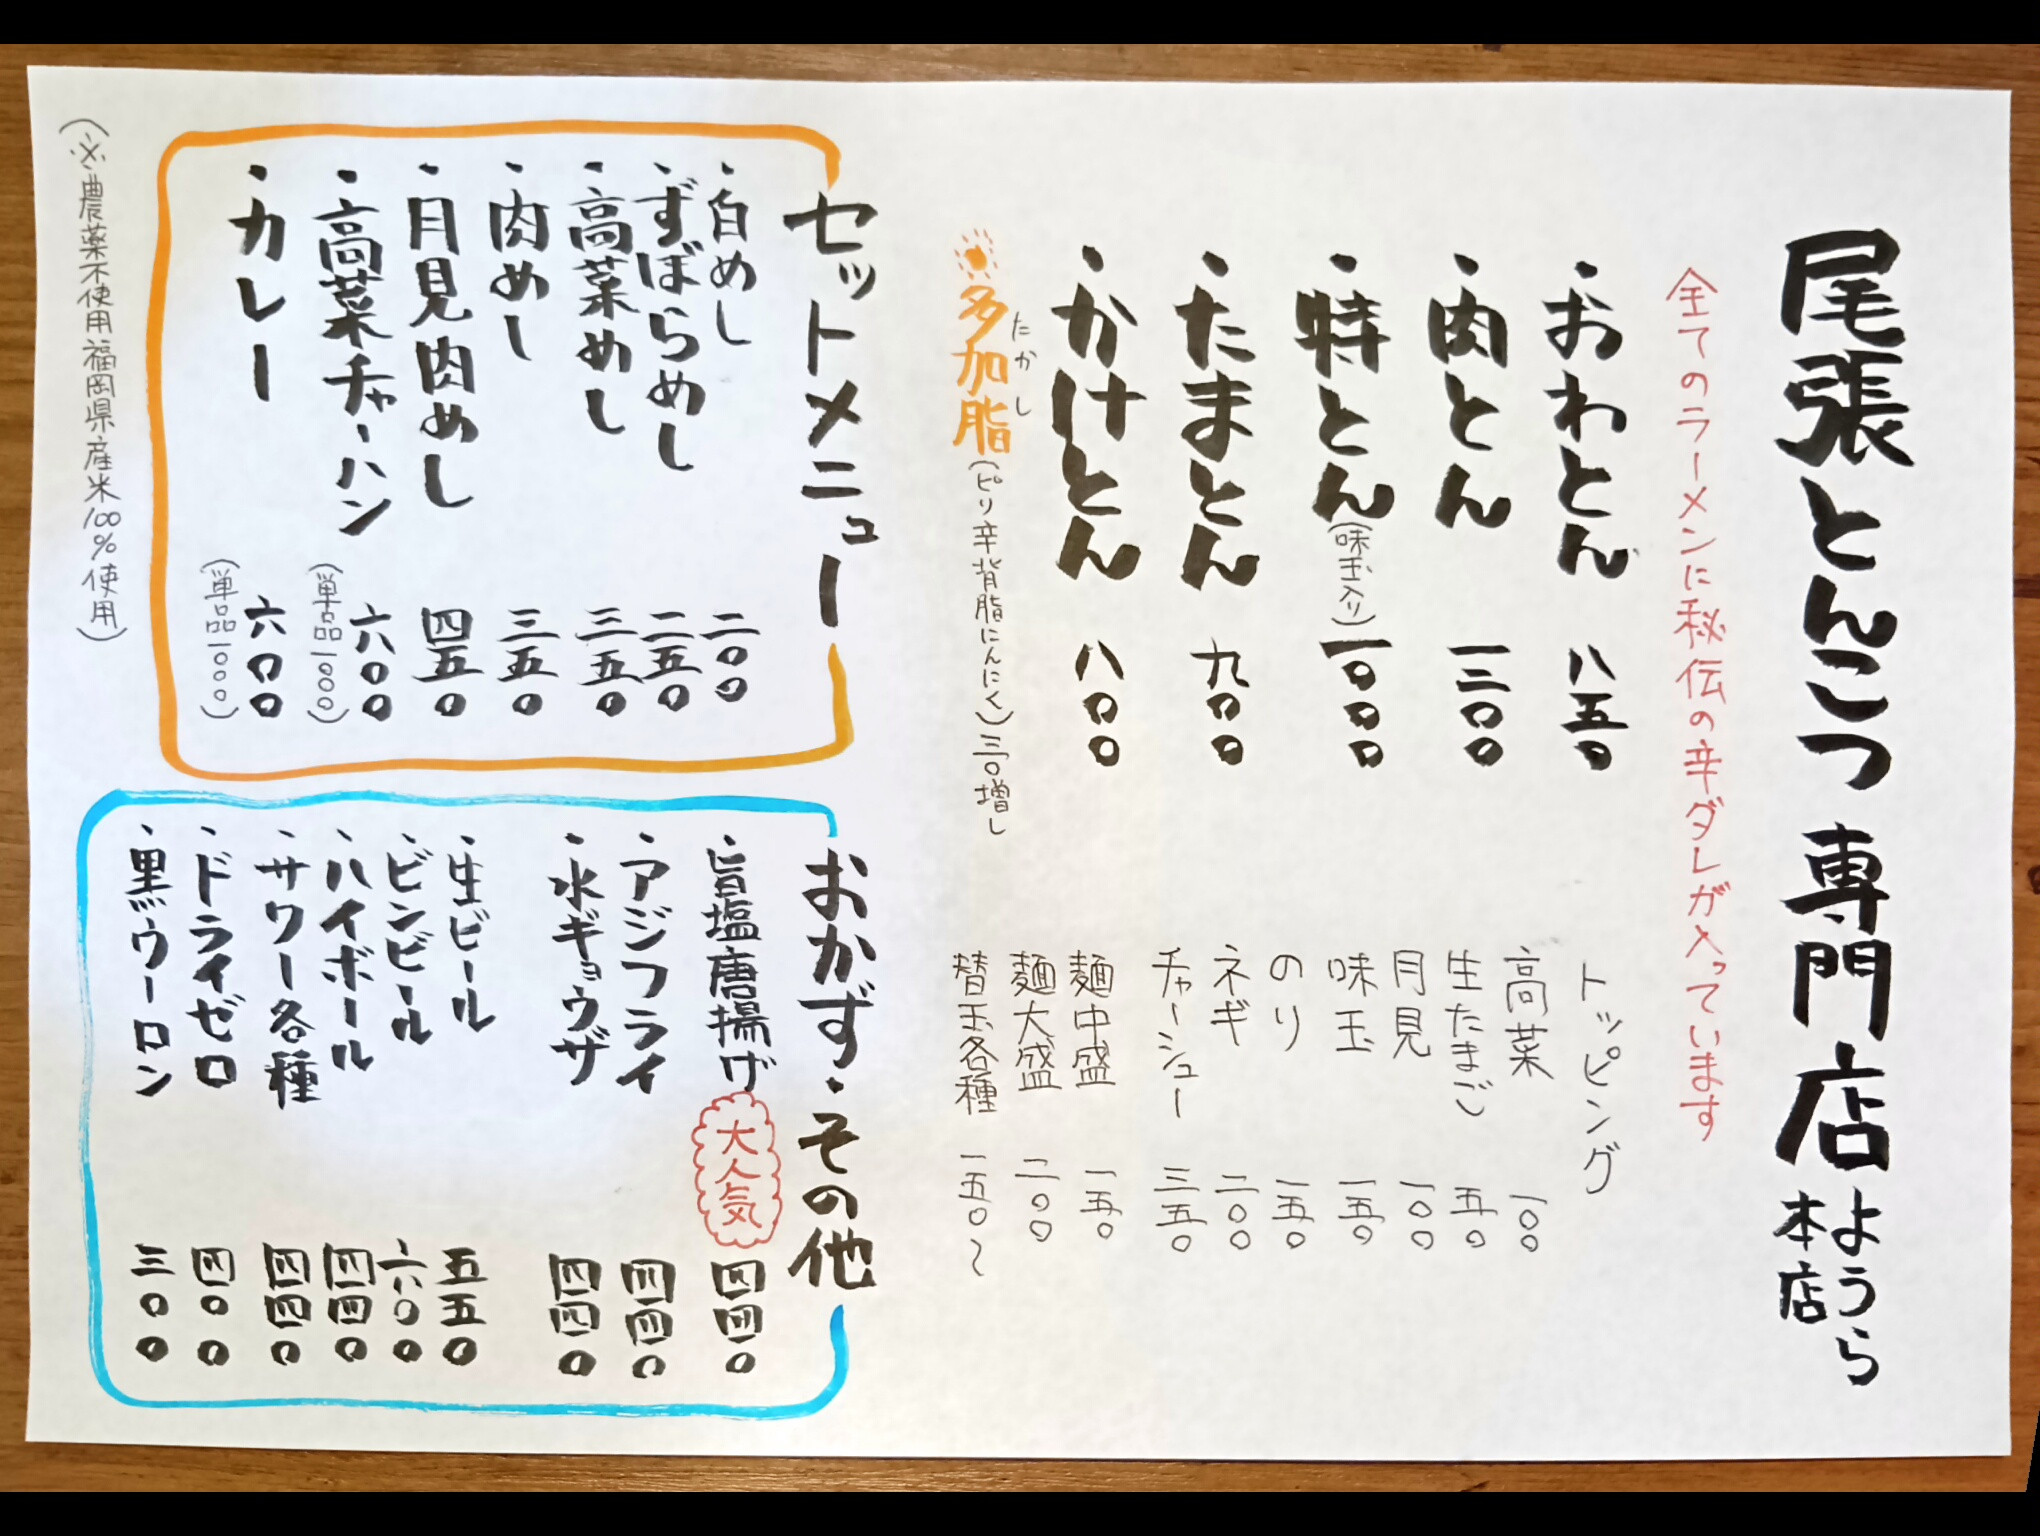 尾張とんこつ専門店ようら本店
全てのラーメンに秘伝の辛ダレが入っています
・おわとん 八五〇
・肉とん 一三〇〇
・特とん(味玉入り) 一〇〇〇
・たまとん 九〇〇
・かけとん 八〇〇
・多加脂(ピリ辛背脂にんにく)三〇増し
たかし
トッピング
高菜 一〇〇
生たまご 五〇
月見 一〇〇
味玉 一五〇
のり 一五〇
ネギ 二〇〇
チャーシュー 三五〇
麺中盛 一五〇
麺大盛 二〇〇
替玉各種 一五〇〜
セットメニュー
・白めし 二〇〇
・ずぼらめし 二五〇
・高菜めし 三五〇
・肉めし 三五〇
・月見肉めし 四五〇
・高菜チャーハン 六〇〇
(単品一〇〇〇)
・カレー 六〇〇
(単品一〇〇〇)
(※農薬不使用福岡県産米100%使用)
おかず・その他
・旨塩唐揚げ 大人気 四四〇
・アジフライ 四四〇
・水ギョウザ 四四〇
・生ビール 五五〇
・ビンビール 六〇〇
・ハイボール 四四〇
・サワー各種 四四〇
・ドライゼロ 四〇〇
・黒ウーロン 三〇〇